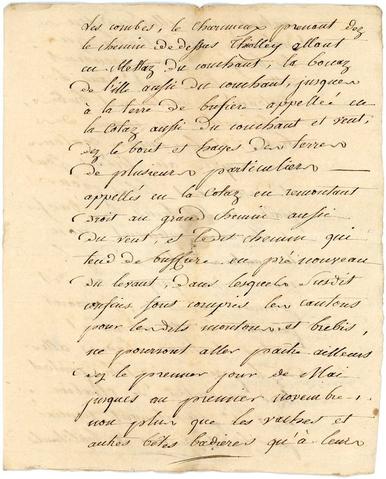 Les combes, le charmeux prenant dez
le chemin de dessus Thalley allant
en Mettaz du couchant, la bouaz
de l'ille aussi du couchant, jusques
à la terre de bufiere appellée en
la Cotaz aussi du couchant et vent,
dez le bout et hayes des terres
de plusieurs particuliers
appellés en la Cotaz en remontant
droit au grand chemin aussi
du vent, et ledit chemin qui
tend de buffiere en pré nouveau
du levant, dans lesquels susdit
confins sont compris les cantons
pour lesdits moutons et brebis,
ne pourront aller paître ailleurs
dez le premier jour de Mai
jusques au premier novembre,
non plus que les vaches et
autres bêtes à leur